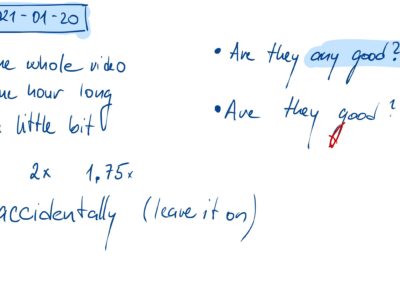 21-01-20
whole video
hour long
little bit
2x 1,75x
accidentally (leave it on)
• Are they any good?
• Are they good?